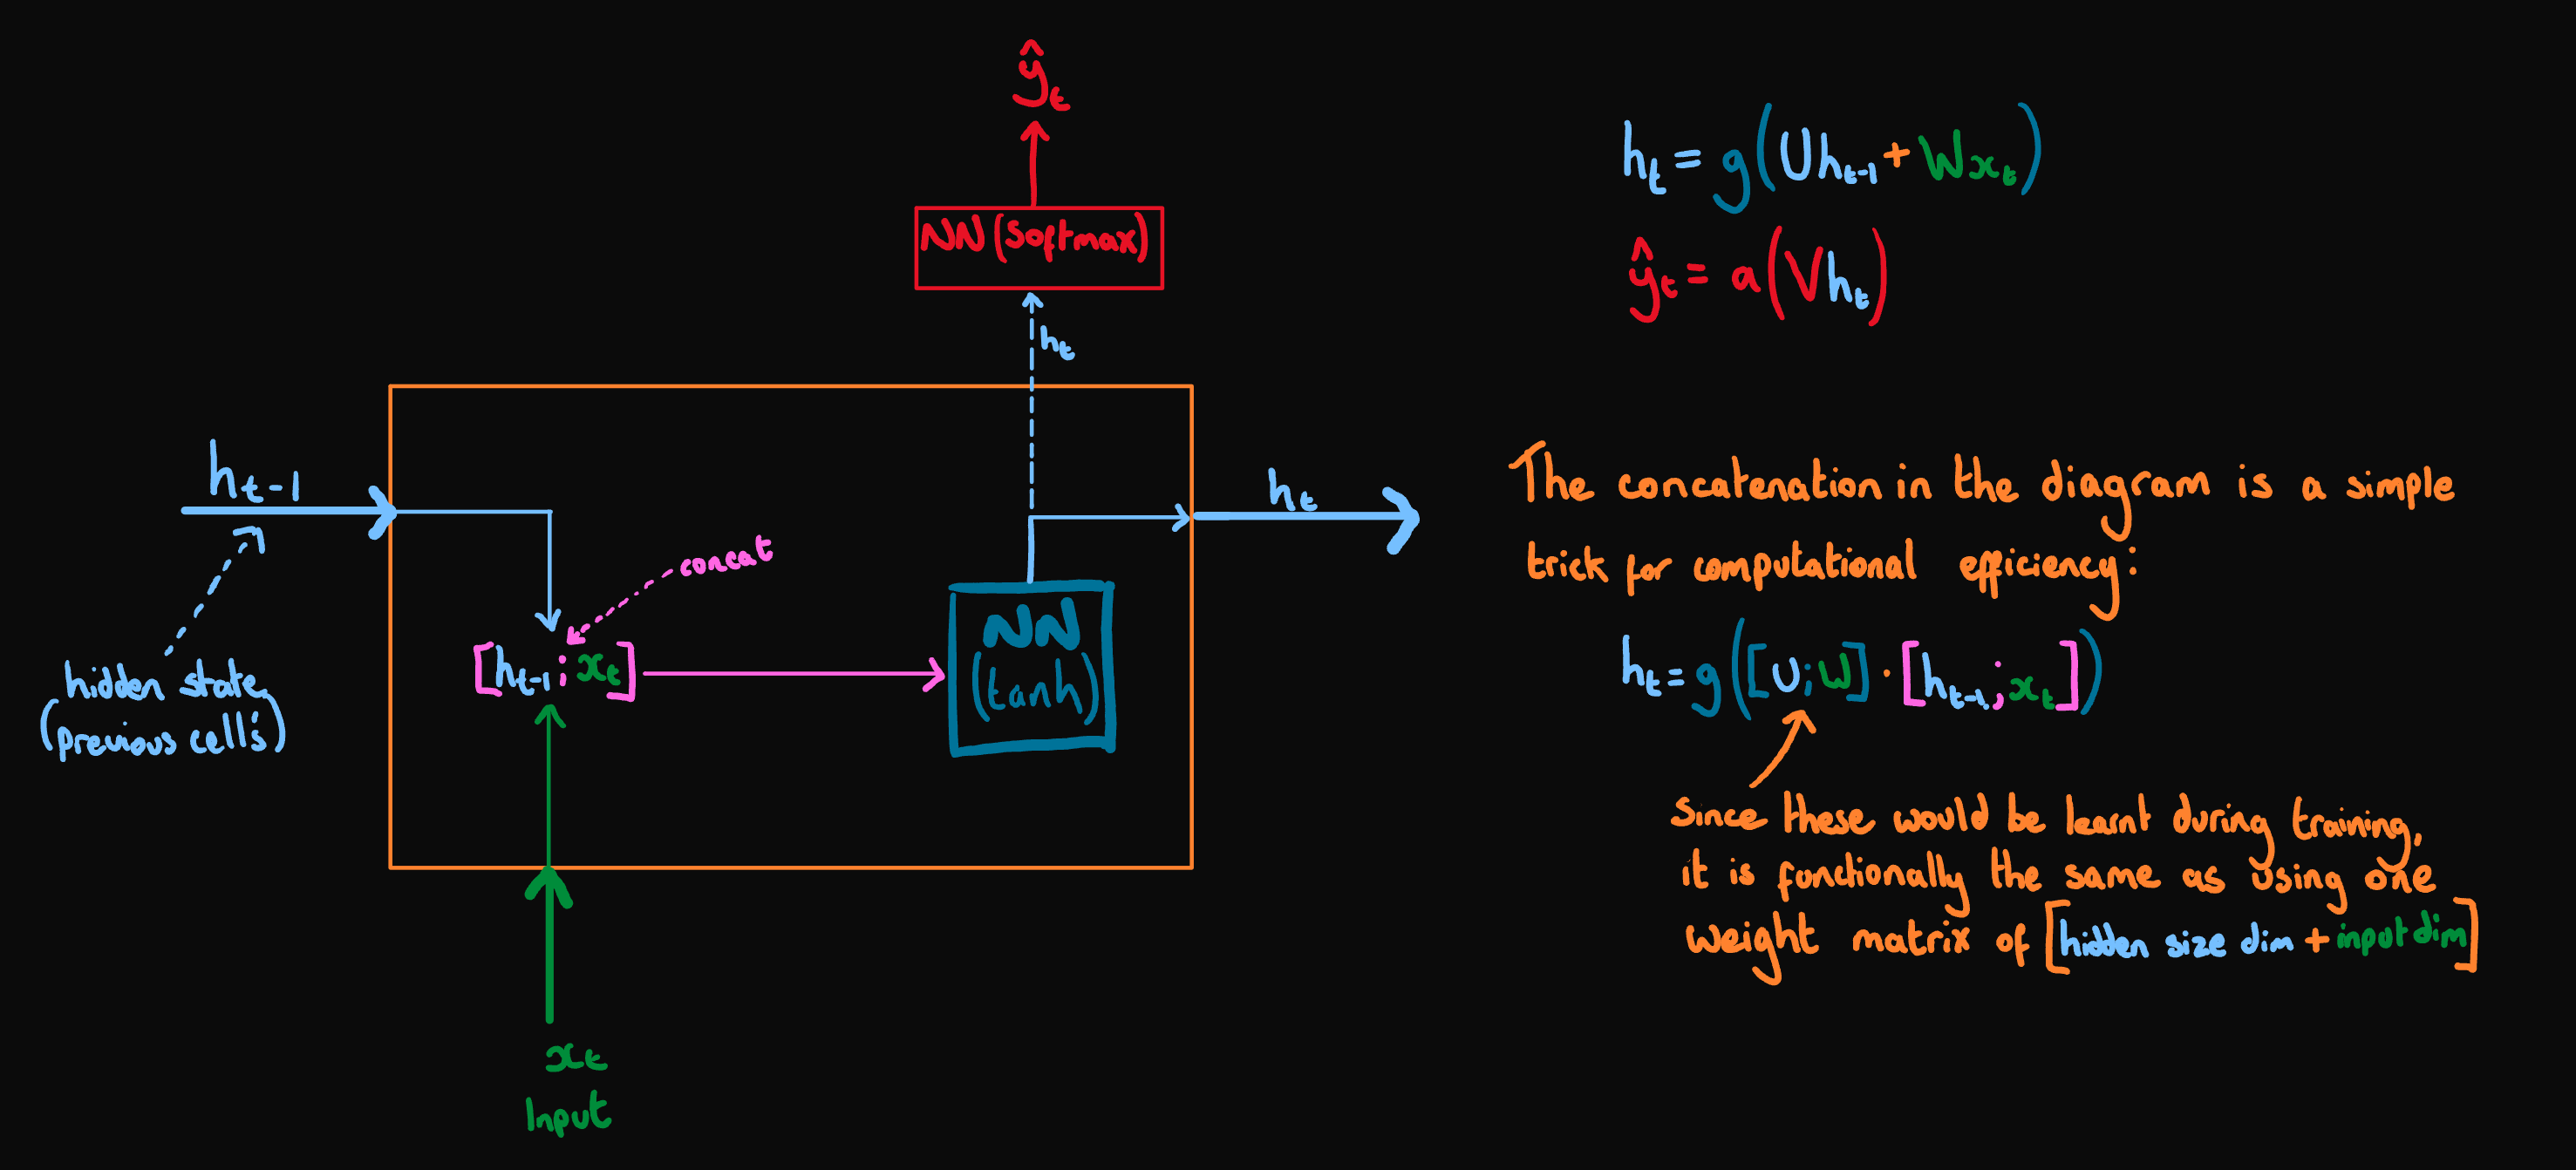 ŷₜ
NN (softmax)
hₜ
hₜ₋₁
hₜ
concat
[hₜ₋₁ ; xₜ]
NN
(tanh)
hidden state
(previous cell's)
xₜ
Input
hₜ = g(Uhₜ₋₁ + Wxₜ)
ŷₜ = a(Vhₜ)
The concatenation in the diagram is a simple
trick for computational efficiency:
hₜ = g([U;W] · [hₜ₋₁;xₜ])
since these would be learnt during training,
it is functionally the same as using one
weight matrix of [hidden size dim + input dim]